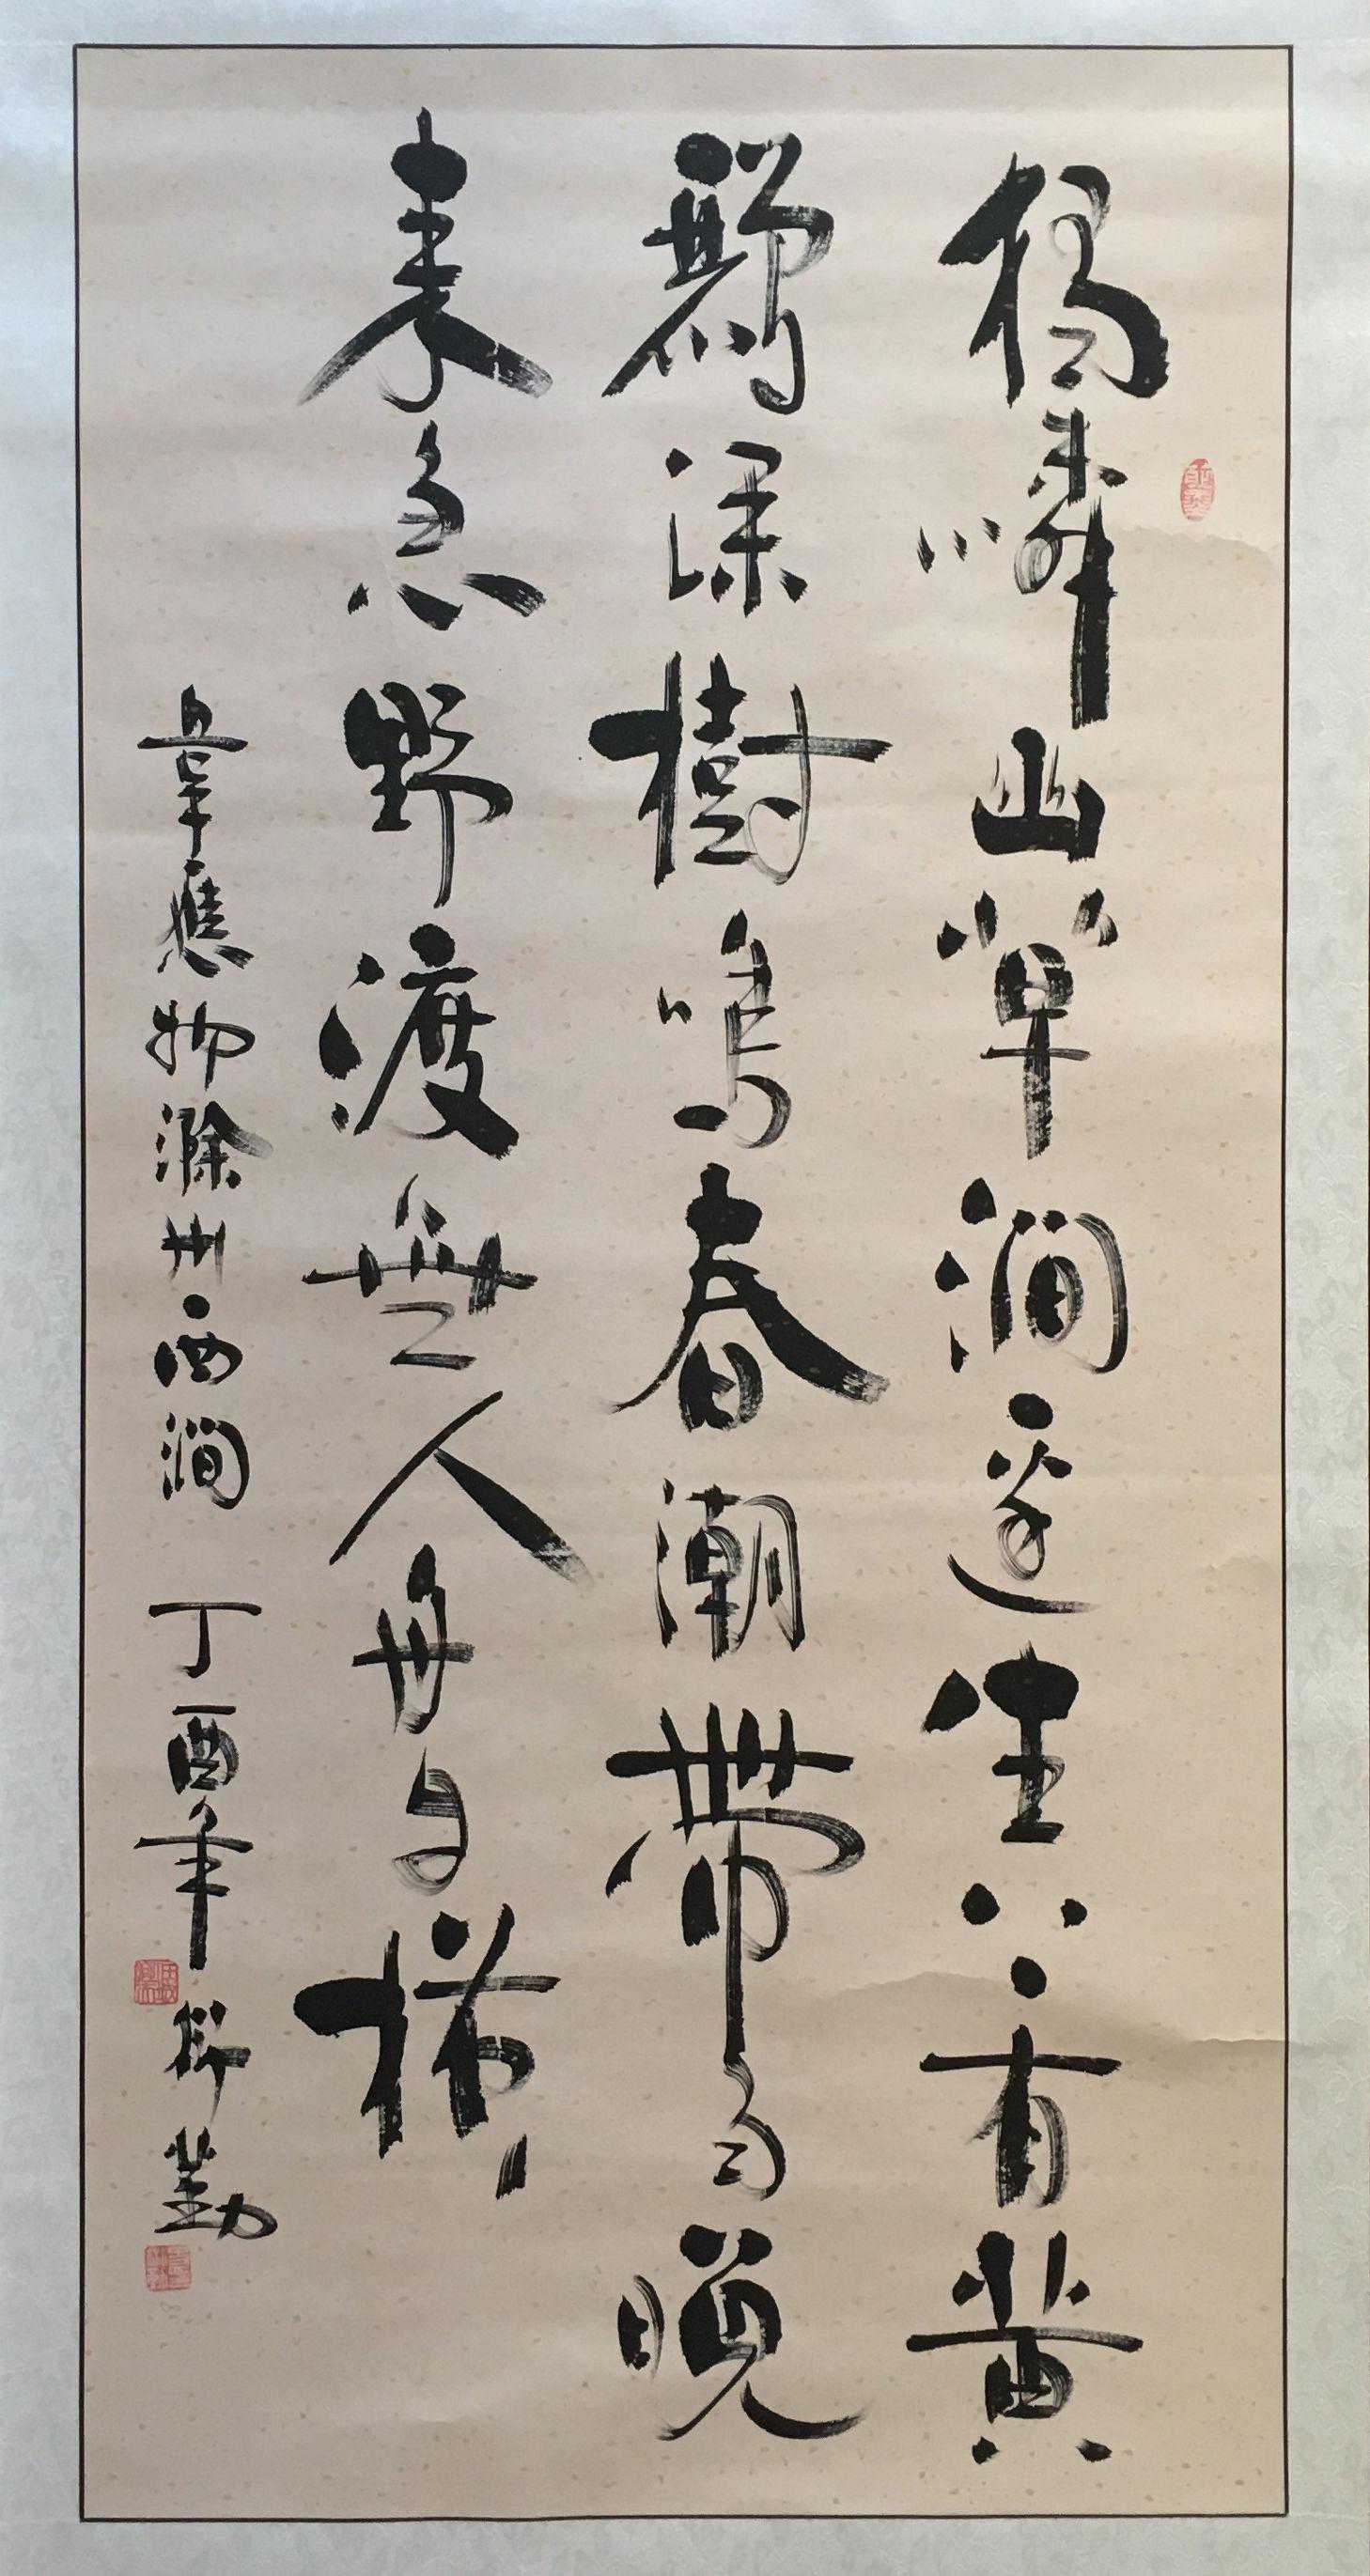 獨憐幽草澗邊生上有黃
鸝深樹鳴春潮帶雨晚
來急野渡無人舟自橫
韋應物滁州西澗 丁酉年 勤